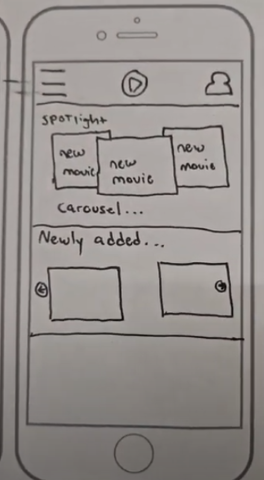 SPOTlight
new
movie
new
movie
new
movie
Carousel...
Newly added...